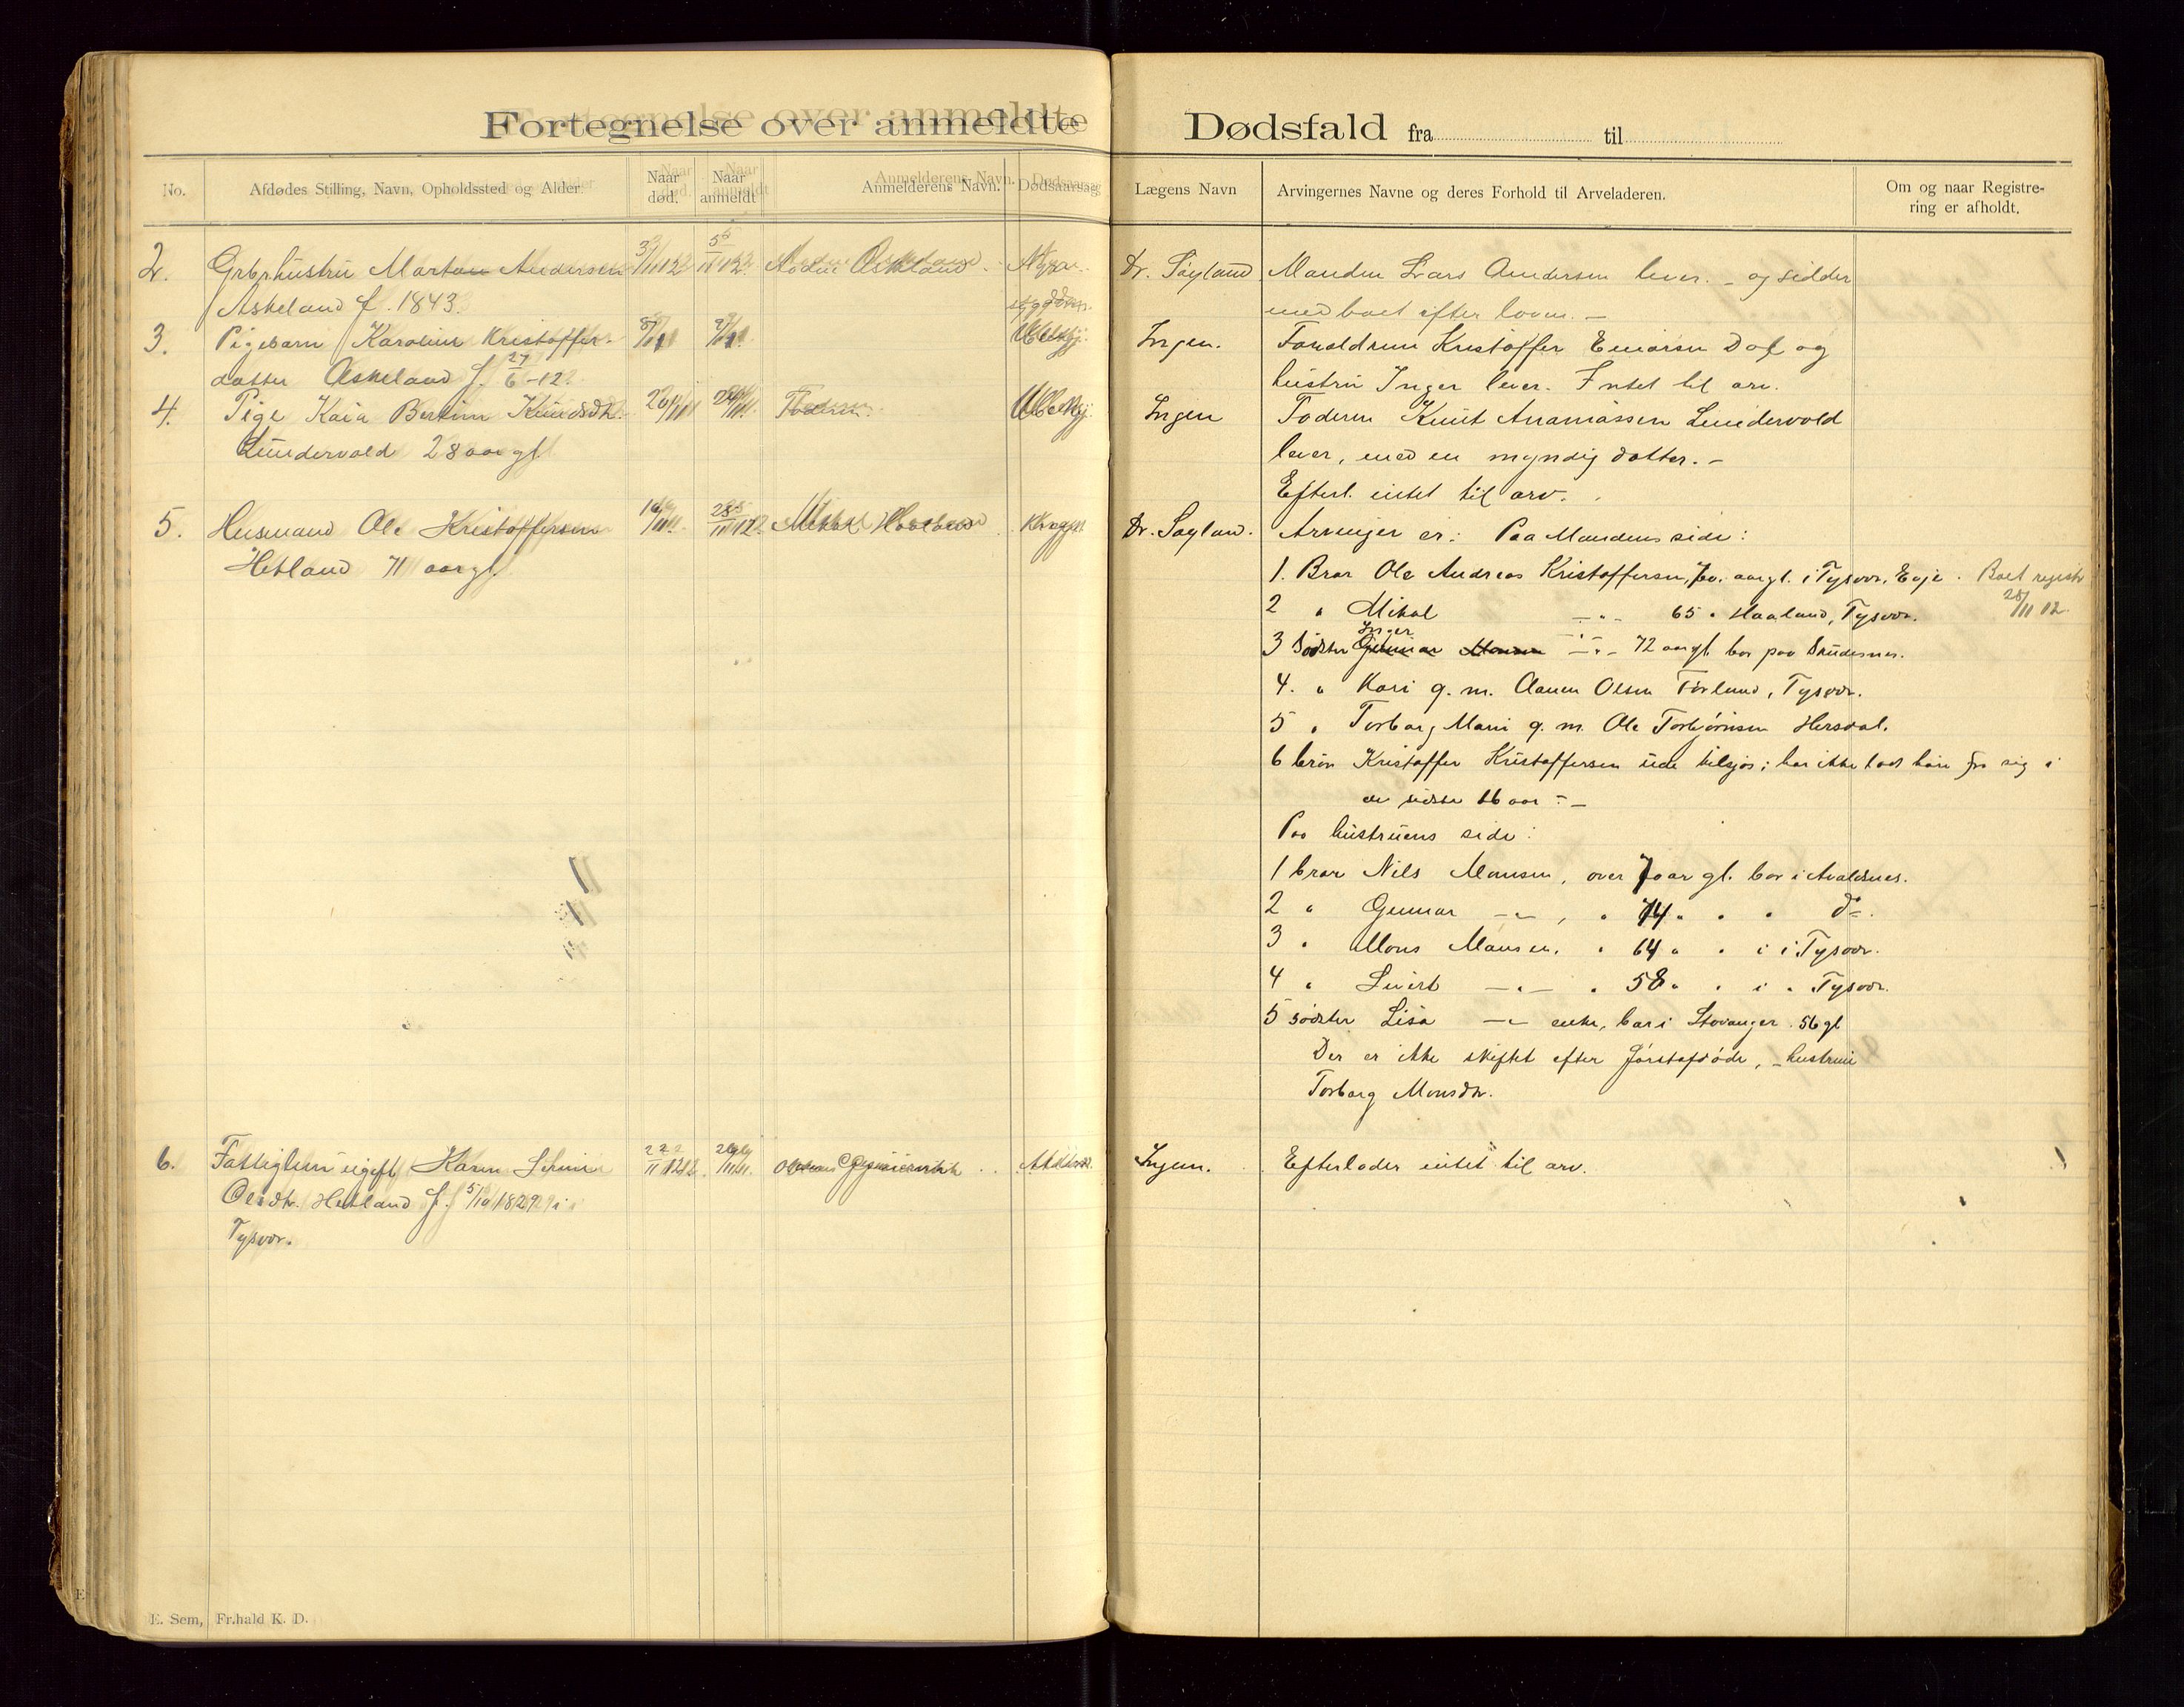 Fortegnelse over anmeldte Dødsfald fra til
No. Afdødes Stilling, Navn, Opholdssted og Alder. Naar død. Naar anmeldt Anmelderens Navn. Dødsaarsag Lægens Navn Arvingernes Navne og deres Forhold til Arveladeren. Om og naar Registrering er afholdt.
2. Grbrhustru Andersen 3/11 12 5/11 12 Askeland Nyre Dr. Søyland Manden Lars Andersen lever. - og sidder
Askeland f. 1843. sygdom med boet efter loven. -
3. Pigebarn Karoline Kristoffer- 8/11 9/11 Ubekj. Ingen. Foræld­rene Kristoffer Einarsen Dal og
datter Askeland f. 27/6-12 hustru Inger lever. Intet til arv.
4. Pige Kaia Bertine Knudsdtr. 20/11 24/11 Faderen Ubekj. Ingen Faderen Knut Ananiassen Lundervold
Lundervold 28 aar gl. lever, med en myndig datter. -
Efterl. intet til arv.
5. Husmand Ole Kristoffersen 19/11 28/11 12 Mikal Haaland Dr. Søyland. Arvinger er: Paa Mandens side:
Hetland 71 aar gl. 1. Bror Ole Andreas Kristoffersen, aar gl. i Tysvær, Boet registr
2 " Mikal -"- 65 " Haaland, Tysvær. 28/11 12
3 Søster Inger Gunnar Monsen -"- 72 aar gl. bor paa Skudesnes.
4. " Kari g. m. Olsen Førland, Tysvær.
5 " Torborg Marie g. m. Ole Torbjørnsen Hersdal.
6 bror Kristoffer Kristoffersen ude tilsjøs; har ikke ladt høre fra sig i
de sidste 16 aar. -
Paa hustruens side:
1 bror Nils Monsen, over 70 aar gl. bor i Avaldsnes.
2 " Gunnar -"-, " 74 " " " do.
3 " Mons Monsen. " 64 " " i Tysvær.
4 " Sivert -"- " 58 " " i " Tysvær.
5 søster Lisa -"- enke, bor i Stavanger. 56 gl
Der er ikke skiftet efter førstafdøde, - hustru
Torborg Monsdtr.
6. Fattiglem ugift Karen Olsdtr. Hetland f. 5/10 1829 i 22/11 12 26/11 Ingen. Efterlader intet til arv.
Tysvær.
E. Sem, Fr.hald K. D.